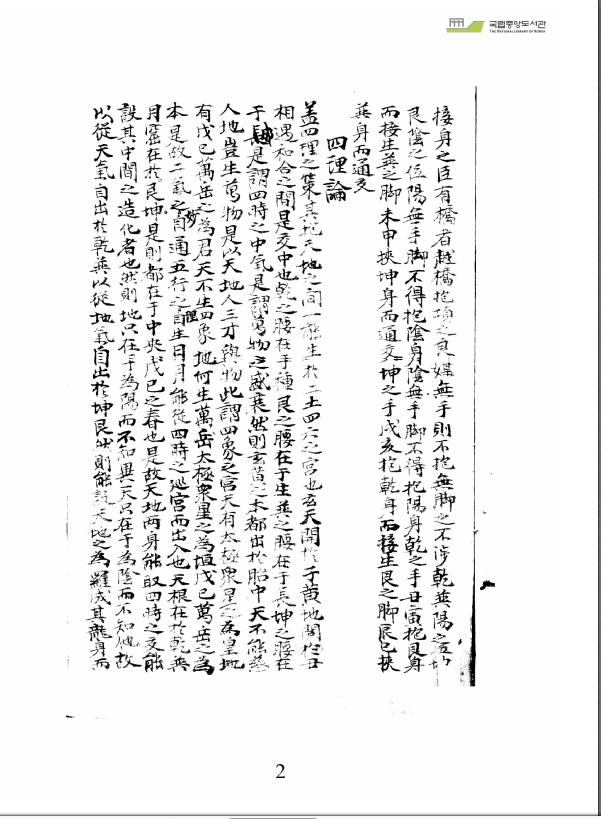 국립중앙도서관
THE NATIONAL LIBRARY OF KOREA
接身之臣有橋者越橋抱項之良媒無手則不抱無脚之不涉乾巽陽之位
艮陰之位陽無手脚不得抱陰身陰無手脚不得抱陽身乾之手丑寅抱艮身
而接生巽之脚未申挾坤身而通交坤之手戌亥抱乾身而接生艮之脚辰巳挾
巽身而通交
四理論
盖四理之策其抱天地之間一能生於二土四六之宮也玄天開於子黃地闢於丑
相遇和合之間是交中也乾之腰在于種艮之腰在于生巽之腰在于長坤之腰在
于是謂四時之中氣是謂萬物之盛衰然則玄黃之本都出於胎中天不能
人地豈生萬物是以天地人三才與物此謂四象之宮天有太極衆星之為皇地
有戊已萬岳之為君天不生四象地何生萬岳太極衆星之為垣戊已萬岳之為
本是故二氣之妙自通五行之理自生日月能從四時之巡宮而出入也天根在於乾巽
月窟在於艮坤是則都在于中央戊已之春也是故天地兩身能取四時之交能
設其中間之造化者也然則地只在于為陽而不知與天只在于為陰而不知他故
以從天氣自出於乾巽以從地氣自出於坤艮然則能設天地之為羅成其龍身而
2